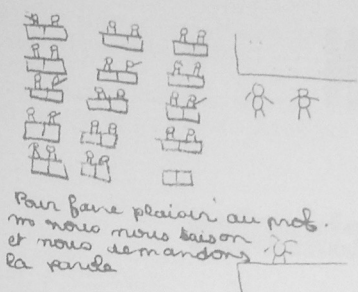 Pour faire plaisir au prof.
nous nous taison
et nous demandons
la parole